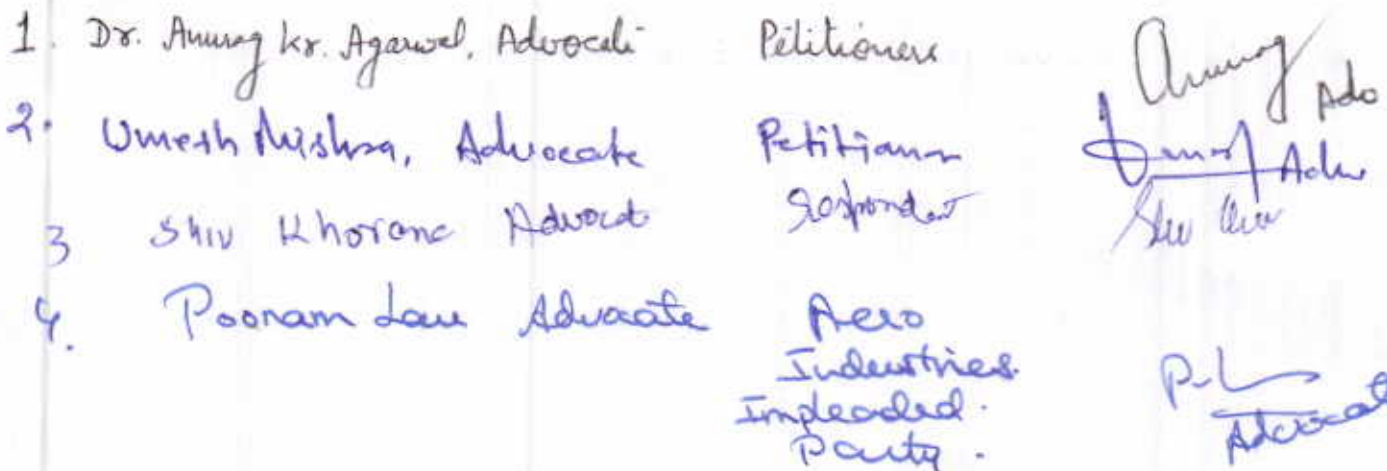 1. Dr. Anurag Kr. Agarwal, Advocate Petitioners Anurag Adv
2. Umesh Mishra, Advocate Petitioner Adv
3 Shiv Khorana Advocate Respondent
4. Poonam Advocate Aero
Industries.
Impleaded.
Party.
P.L
Advocate